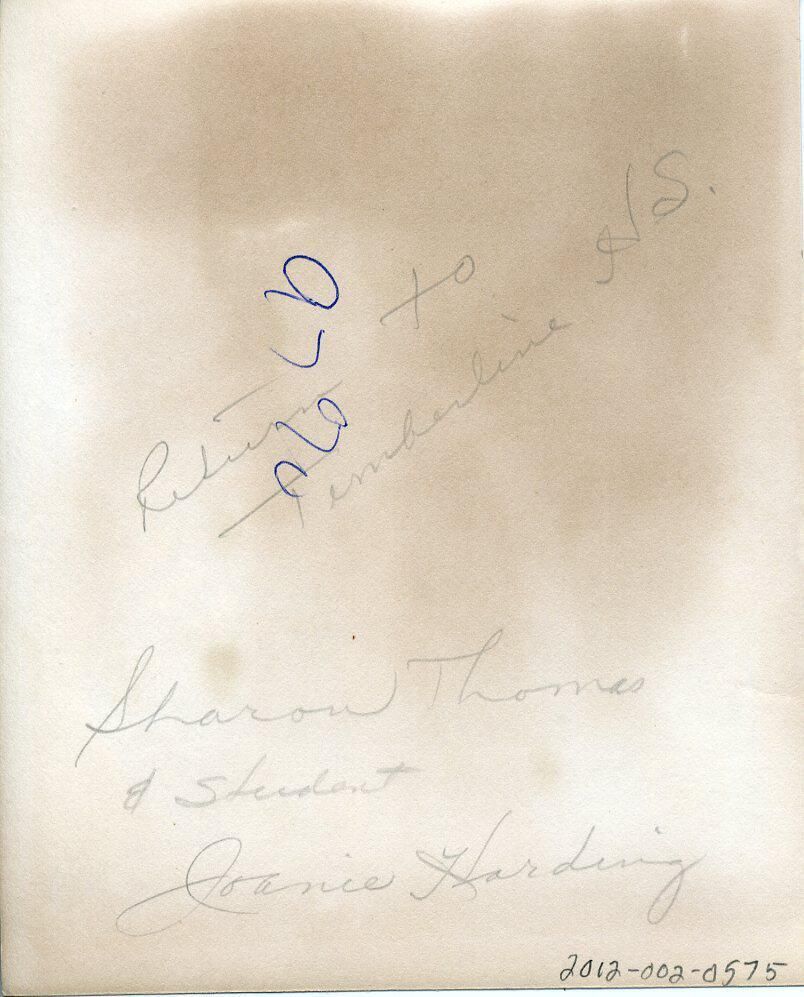 Return to
Timberline HS.
Sharon Thomas
& Student
Joanie Harding
2012-002-0575